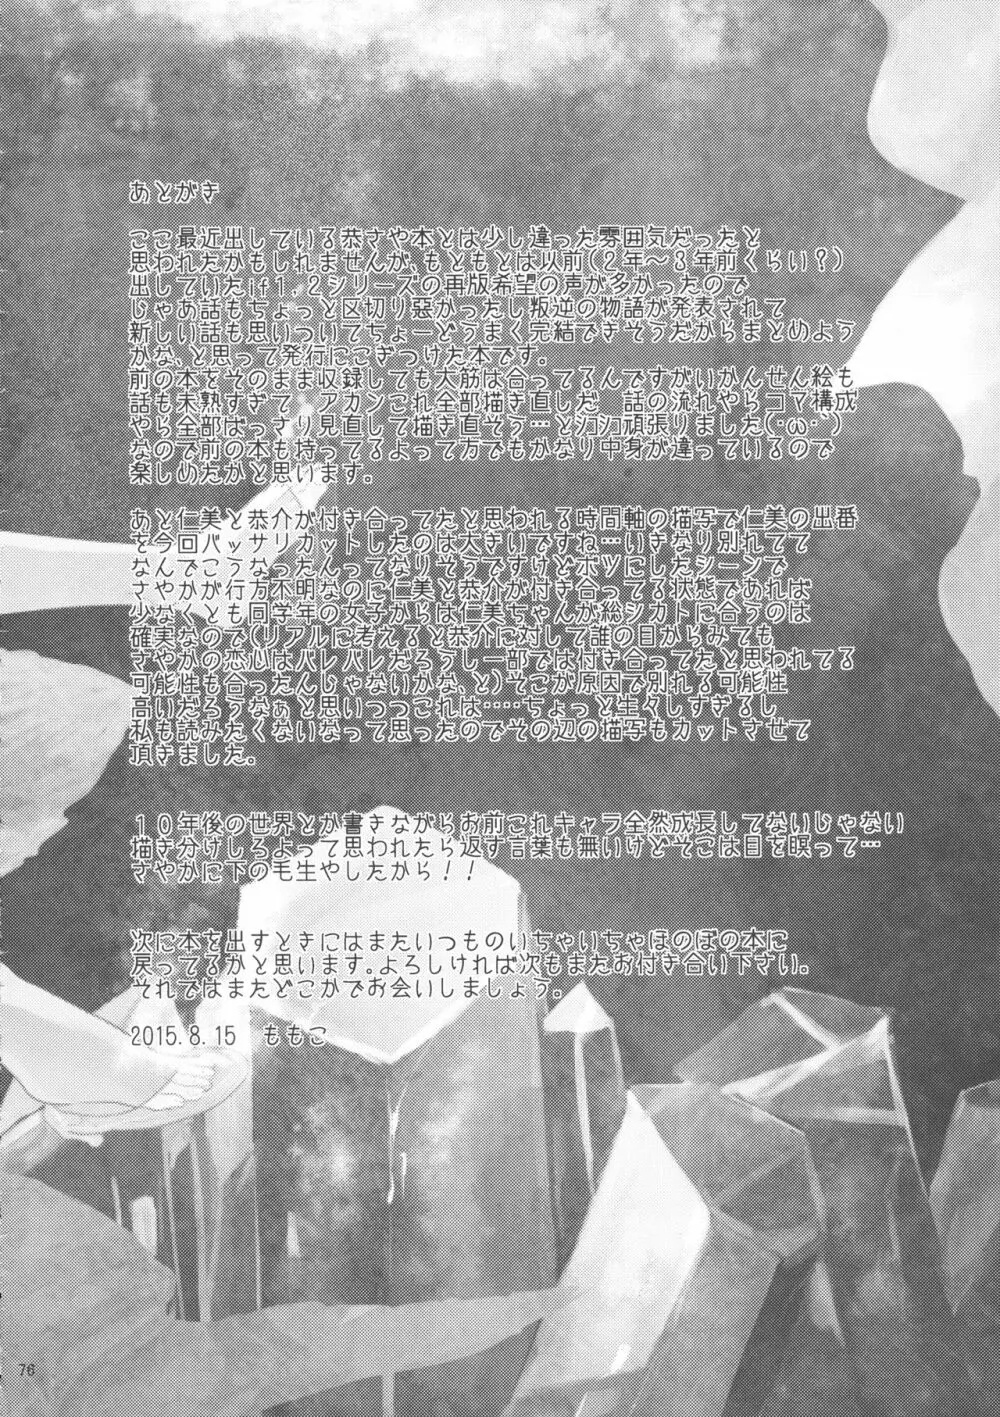 あとがき
ここ最近出している恭さや本とは少し違った雰囲気だったと
思われたかもしれませんが、もともとは以前(2年～3年前くらい?)
出していたif1,2シリーズの再版希望の声が多かったので
じゃあ話もちょっと区切り悪かったし叛逆の物語が発表されて
新しい話も思いついてちょーどうまく完結できそうだからまとめよう
かな、と思って発行にこぎつけた本です。
前の本をそのまま収録しても大筋は合ってるんですがいかんせん絵も
話も未熟すぎて「アカンこれ全部描き直しだ 話の流れやらコマ構成
やら全部ばっさり見直して描き直そう…とｼｺｼｺ頑張りました(･ω･`)
なので前の本も持ってるよって方でもかなり中身が違っているので
楽しめたかと思います。
あと仁美と恭介が付き合ってたと思われる時間軸の描写で仁美の出番
を今回バッサリカットしたのは大きいですね…いきなり別れてて
なんでこうなったんってなりそうですけどボツにしたシーンで
さやかが行方不明なのに仁美と恭介が付き合ってる状態であれば
少なくとも同学年の女子からは仁美ちゃんが総シカトに合うのは
確実なので(リアルに考えると恭介に対して誰の目からみても
さやかの恋心はバレバレだろうし一部では付き合ってたと思われてる
可能性も合ったんじゃないかな、と)そこが原因で別れる可能性
高いだろうなぁと思いつつこれは‥‥ちょっと生々しすぎるし
私も読みたくないなって思ったのでその辺の描写もカットさせて
頂きました。
10年後の世界とか書きながらお前これキャラ全然成長してないじゃない
描き分けしろよって思われたら返す言葉も無いけどそこは目を瞑って…
さやかに下の毛生やしたから!!
次に本を出すときにはまたいつものいちゃいちゃほのぼの本に
戻ってるかと思います。よろしければ次もまたお付き合い下さい。
それではまたどこかでお会いしましょう。
2015.8.15 ももこ
76